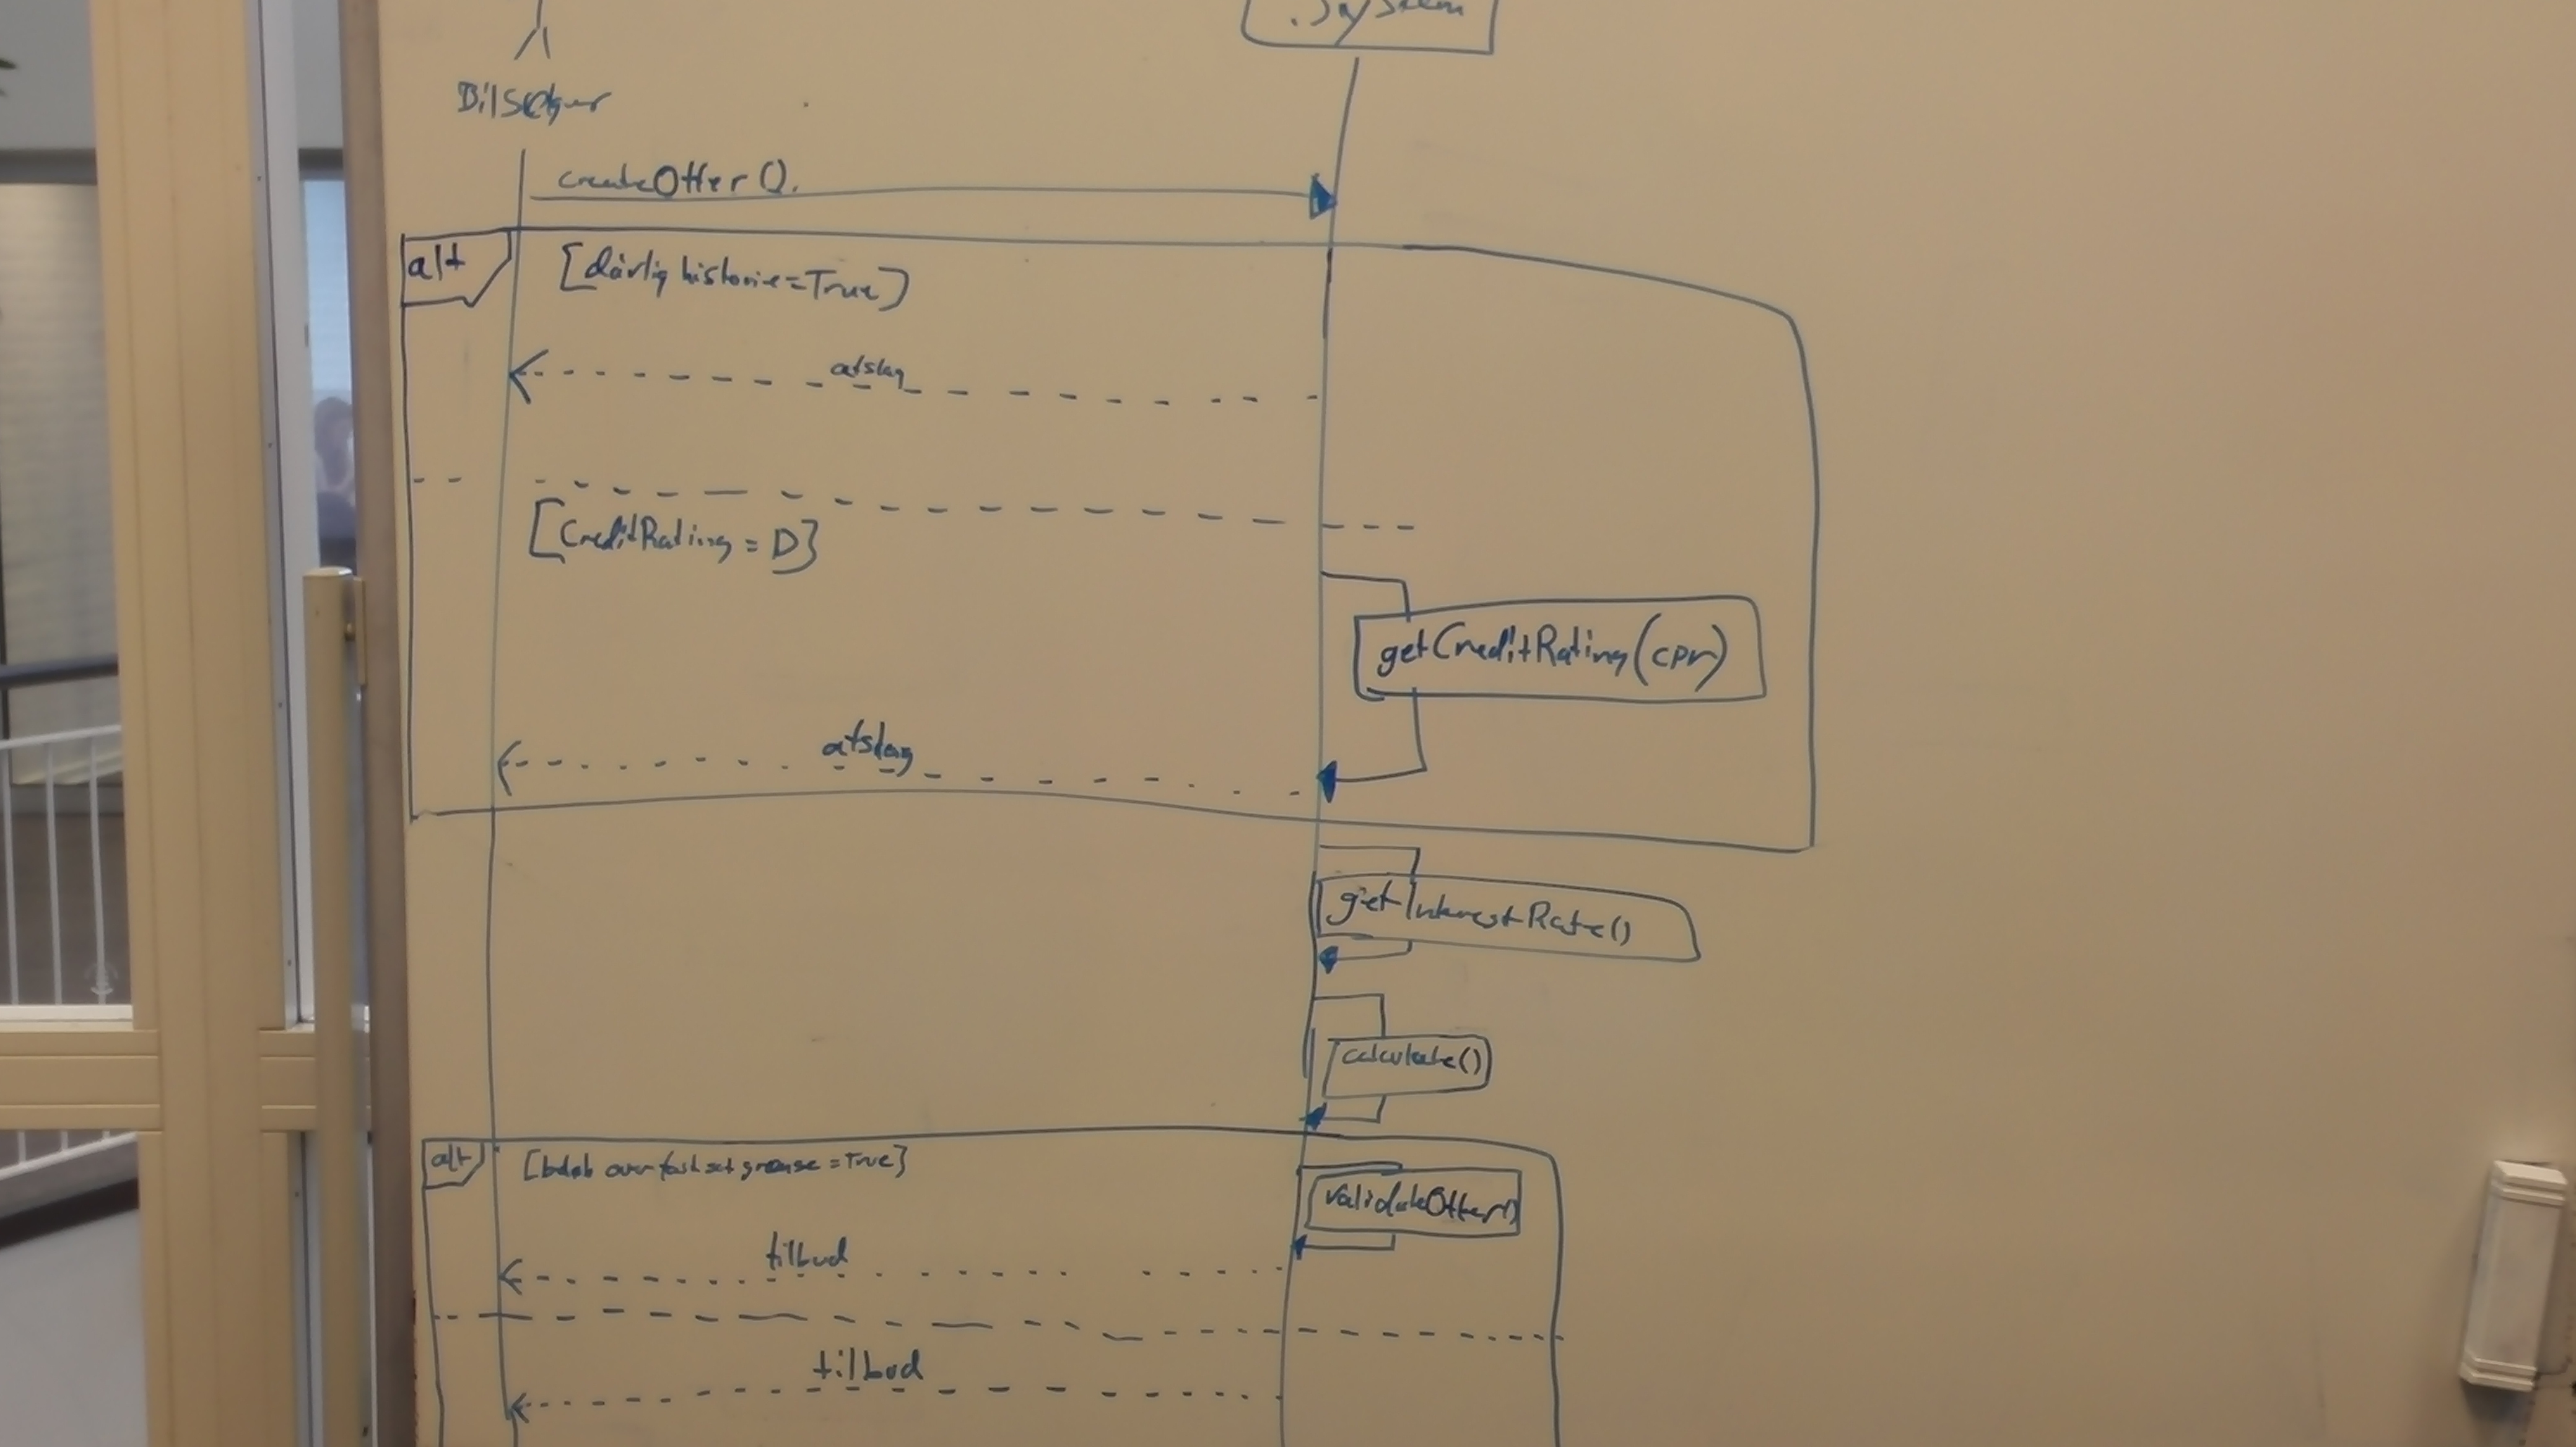 :System
Bilsælger
createOffer().
alt
[dårlig historie=True]
afslag
[CreditRating = D]
getCreditRating(cpr)
afslag
getInterestRate()
calculate()
alt
[beløb over fastsat grænse = True]
validateOffer()
tilbud
tilbud